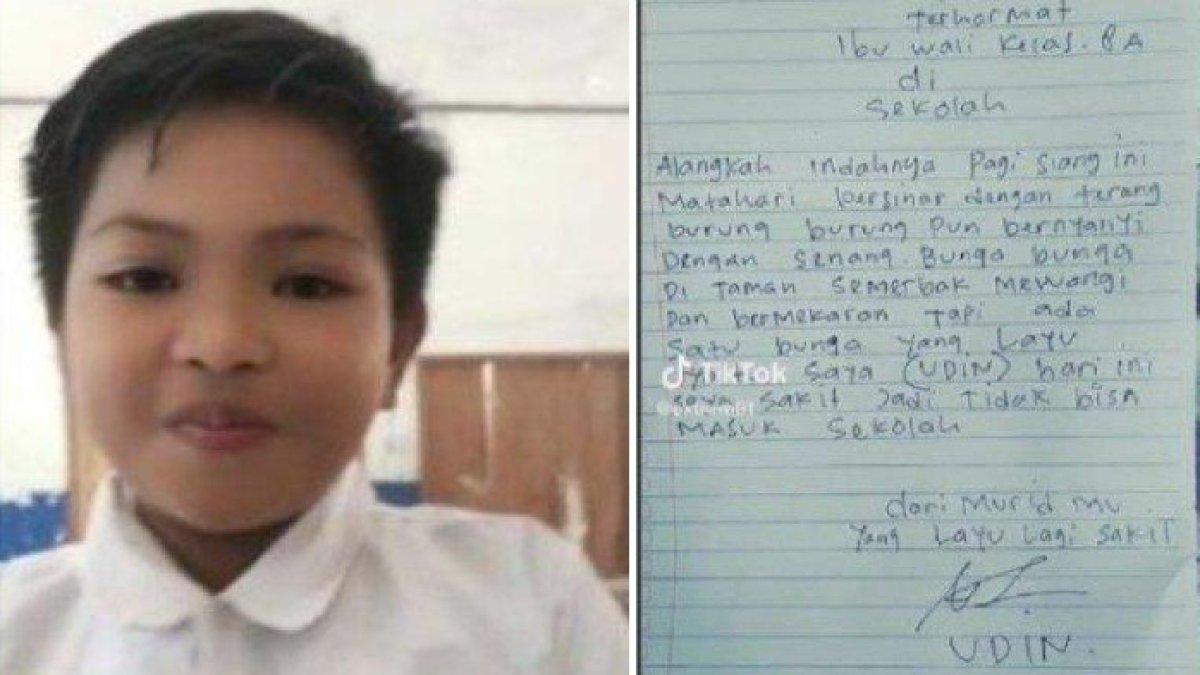 terhormat
Ibu wali kelas. 8A
di
Sekolah
Alangkah indahnya pagi siang ini
Matahari bersinar dengan terang
burung burung pun bernyanyi
Dengan senang. Bunga bunga
Di Taman Semerbak Mewangi
Dan bermekaran Tapi ada
Satu bunga yang Layu
Saya (UDIN) hari ini
saya sakit Jadi Tidak bisa
MASUK Sekolah
TikTok
dari Murid mu
Yang Layu Lagi Sakit
UDIN.